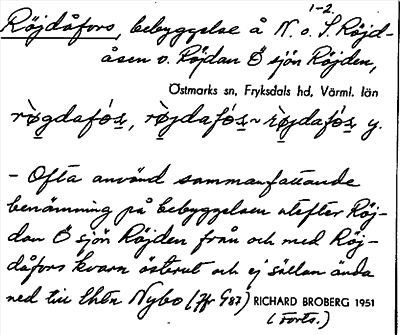 1-2.
Röjdåfors, bebyggelse å N. o. S. Röjd-
åsen o. Röjdan Ö sjön Röjden,
Östmarks sn, Fryksdals hd, Värml. län
rø̀gdafós, rø̀jdafós ~ rø̀jdafós y.
- Ofta använd sammanfattande
benämning på bebyggelsen utefter Röj-
dan Ö sjön Röjden från och med Röj-
dåfors kvarn österut och ej sällan ända
ned till Nybo (Jfr G87) RICHARD BROBERG 1951
(Forts.)